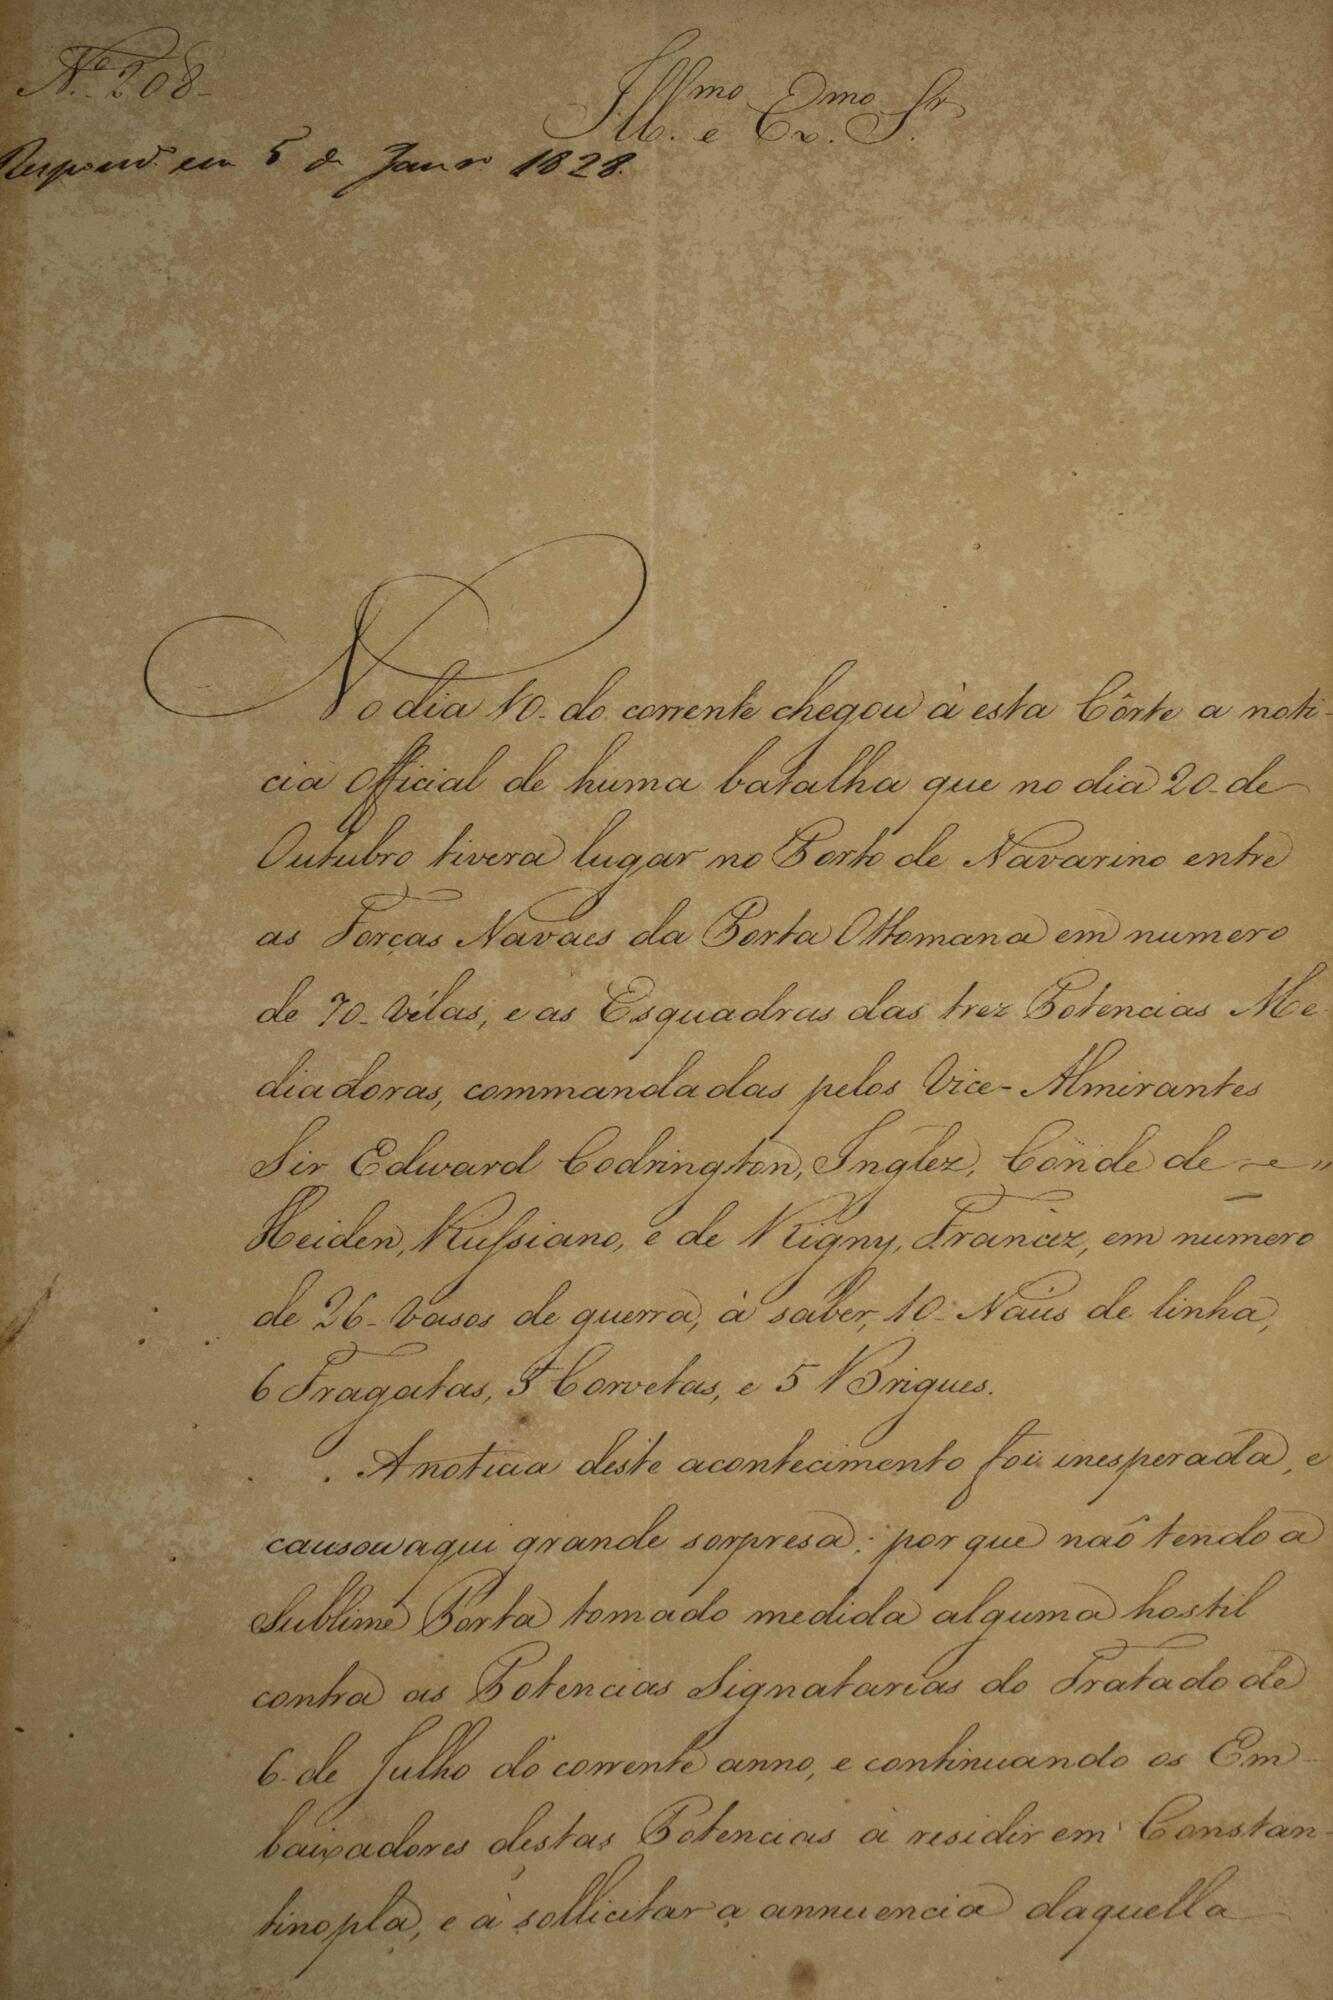 N.º 208-
Ill.mo e Ex.mo Sr.
Respond.º em 5 de Janr.º 1828.
No dia 10. do corrente chegou à esta Côrte a noti-
cia official de huma batalha que no dia 20. de
Outubro tivera lugar no Porto de Navarino entre
as Forças Navaes da Porta Ottomana em numero
de 70. vélas, e as Esquadras das trez Potencias Me-
diadoras, commandadas pelos Vice-Almirantes
Sir Edward Codrington, Inglez, Conde de
Heiden, Russiano, e de Rigny, Francez, em numero
de 26. vasos de guerra, à saber, 10. Náus de linha,
6 Fragatas, 5 Corvetas, e 5 Brigues.
A noticia deste acontecimento foi inesperada, e
causou aqui grande sorpresa: por que naõ tendo a
Sublime Porta tomado medida alguma hostil
contra as Potencias Signatarias do Tratado de
6. de Julho do corrente anno, e continuando os Em-
baixadores destas Potencias à residir em Constan-
tinopla, e à sollicitar a annuencia daquella